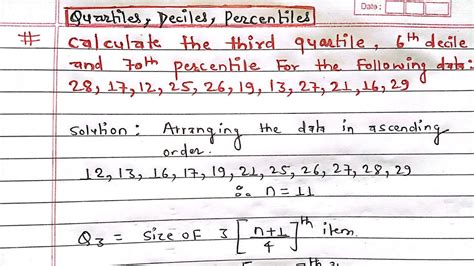 Date:
Quartiles, Deciles, Percentiles
# Calculate the third quartile, 6th decile
and 70th percentile for the following data:
28, 17, 12, 25, 26, 19, 13, 27, 21, 16, 29
Solution: Arranging the data in ascending
order.
12, 13, 16, 17, 19, 21, 25, 26, 27, 28, 29
∴ n = 11
Q3 = size of 3 [n+1/4]th item